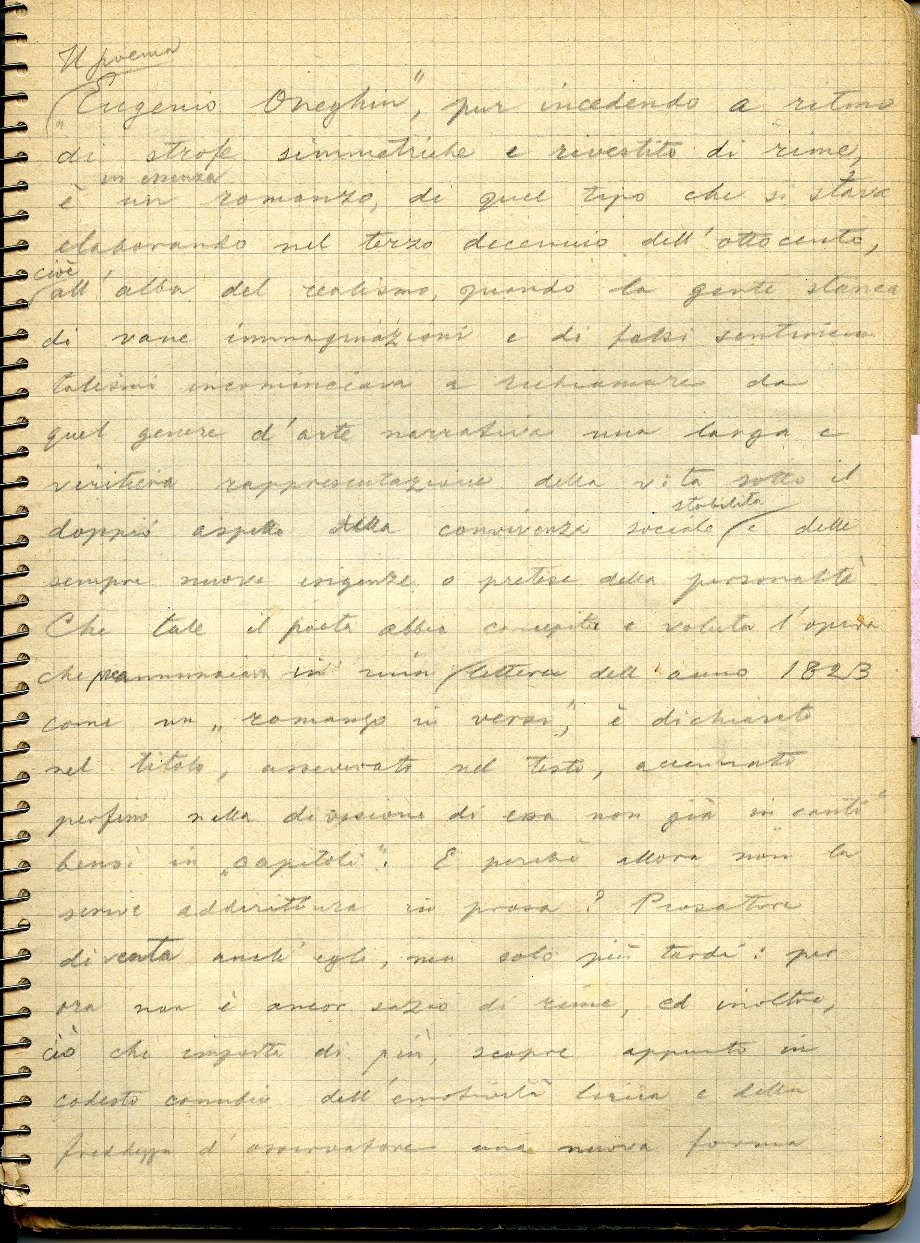 Il poema
„Eugenio Oneghin“, pur incedendo a ritmo
di strofe simmetriche e rivestito di rime,
in essenza
è un romanzo, di quel tipo che si stava
elaborando nel terzo decennio dell'ottocento,
cioè
all'alba del realismo, quando la gente stanca
di vane immaginazioni e di falsi sentimen
talismi incominciava a richiamare da
quel genere d'arte narrativa una larga e
veritiera rappresentazione della vita sotto il
stabilita
doppio aspetto della convivenza sociale e delle
sempre nuove esigenze o pretese della personalità
Che tale il poeta abbia concepita e voluta l'opera
che preannunciava in una lettera dell'anno 1823
come un „romanzo in versi“, è dichiarato
nel titolo, asseverato nel testo, accennato
perfino nella divisione di essa non già in „canti“
bensì in „capitoli“. E perché allora non la
scrive addirittura in prosa? Prosatore
diventa anch'egli, ma solo più tardi: per
ora non è ancor sazio di rime, ed inoltre,
ciò che importa di più, scopre appunto in
codesto connubio dell'emotività lirica e della
freddezza d'osservatore una nuova forma